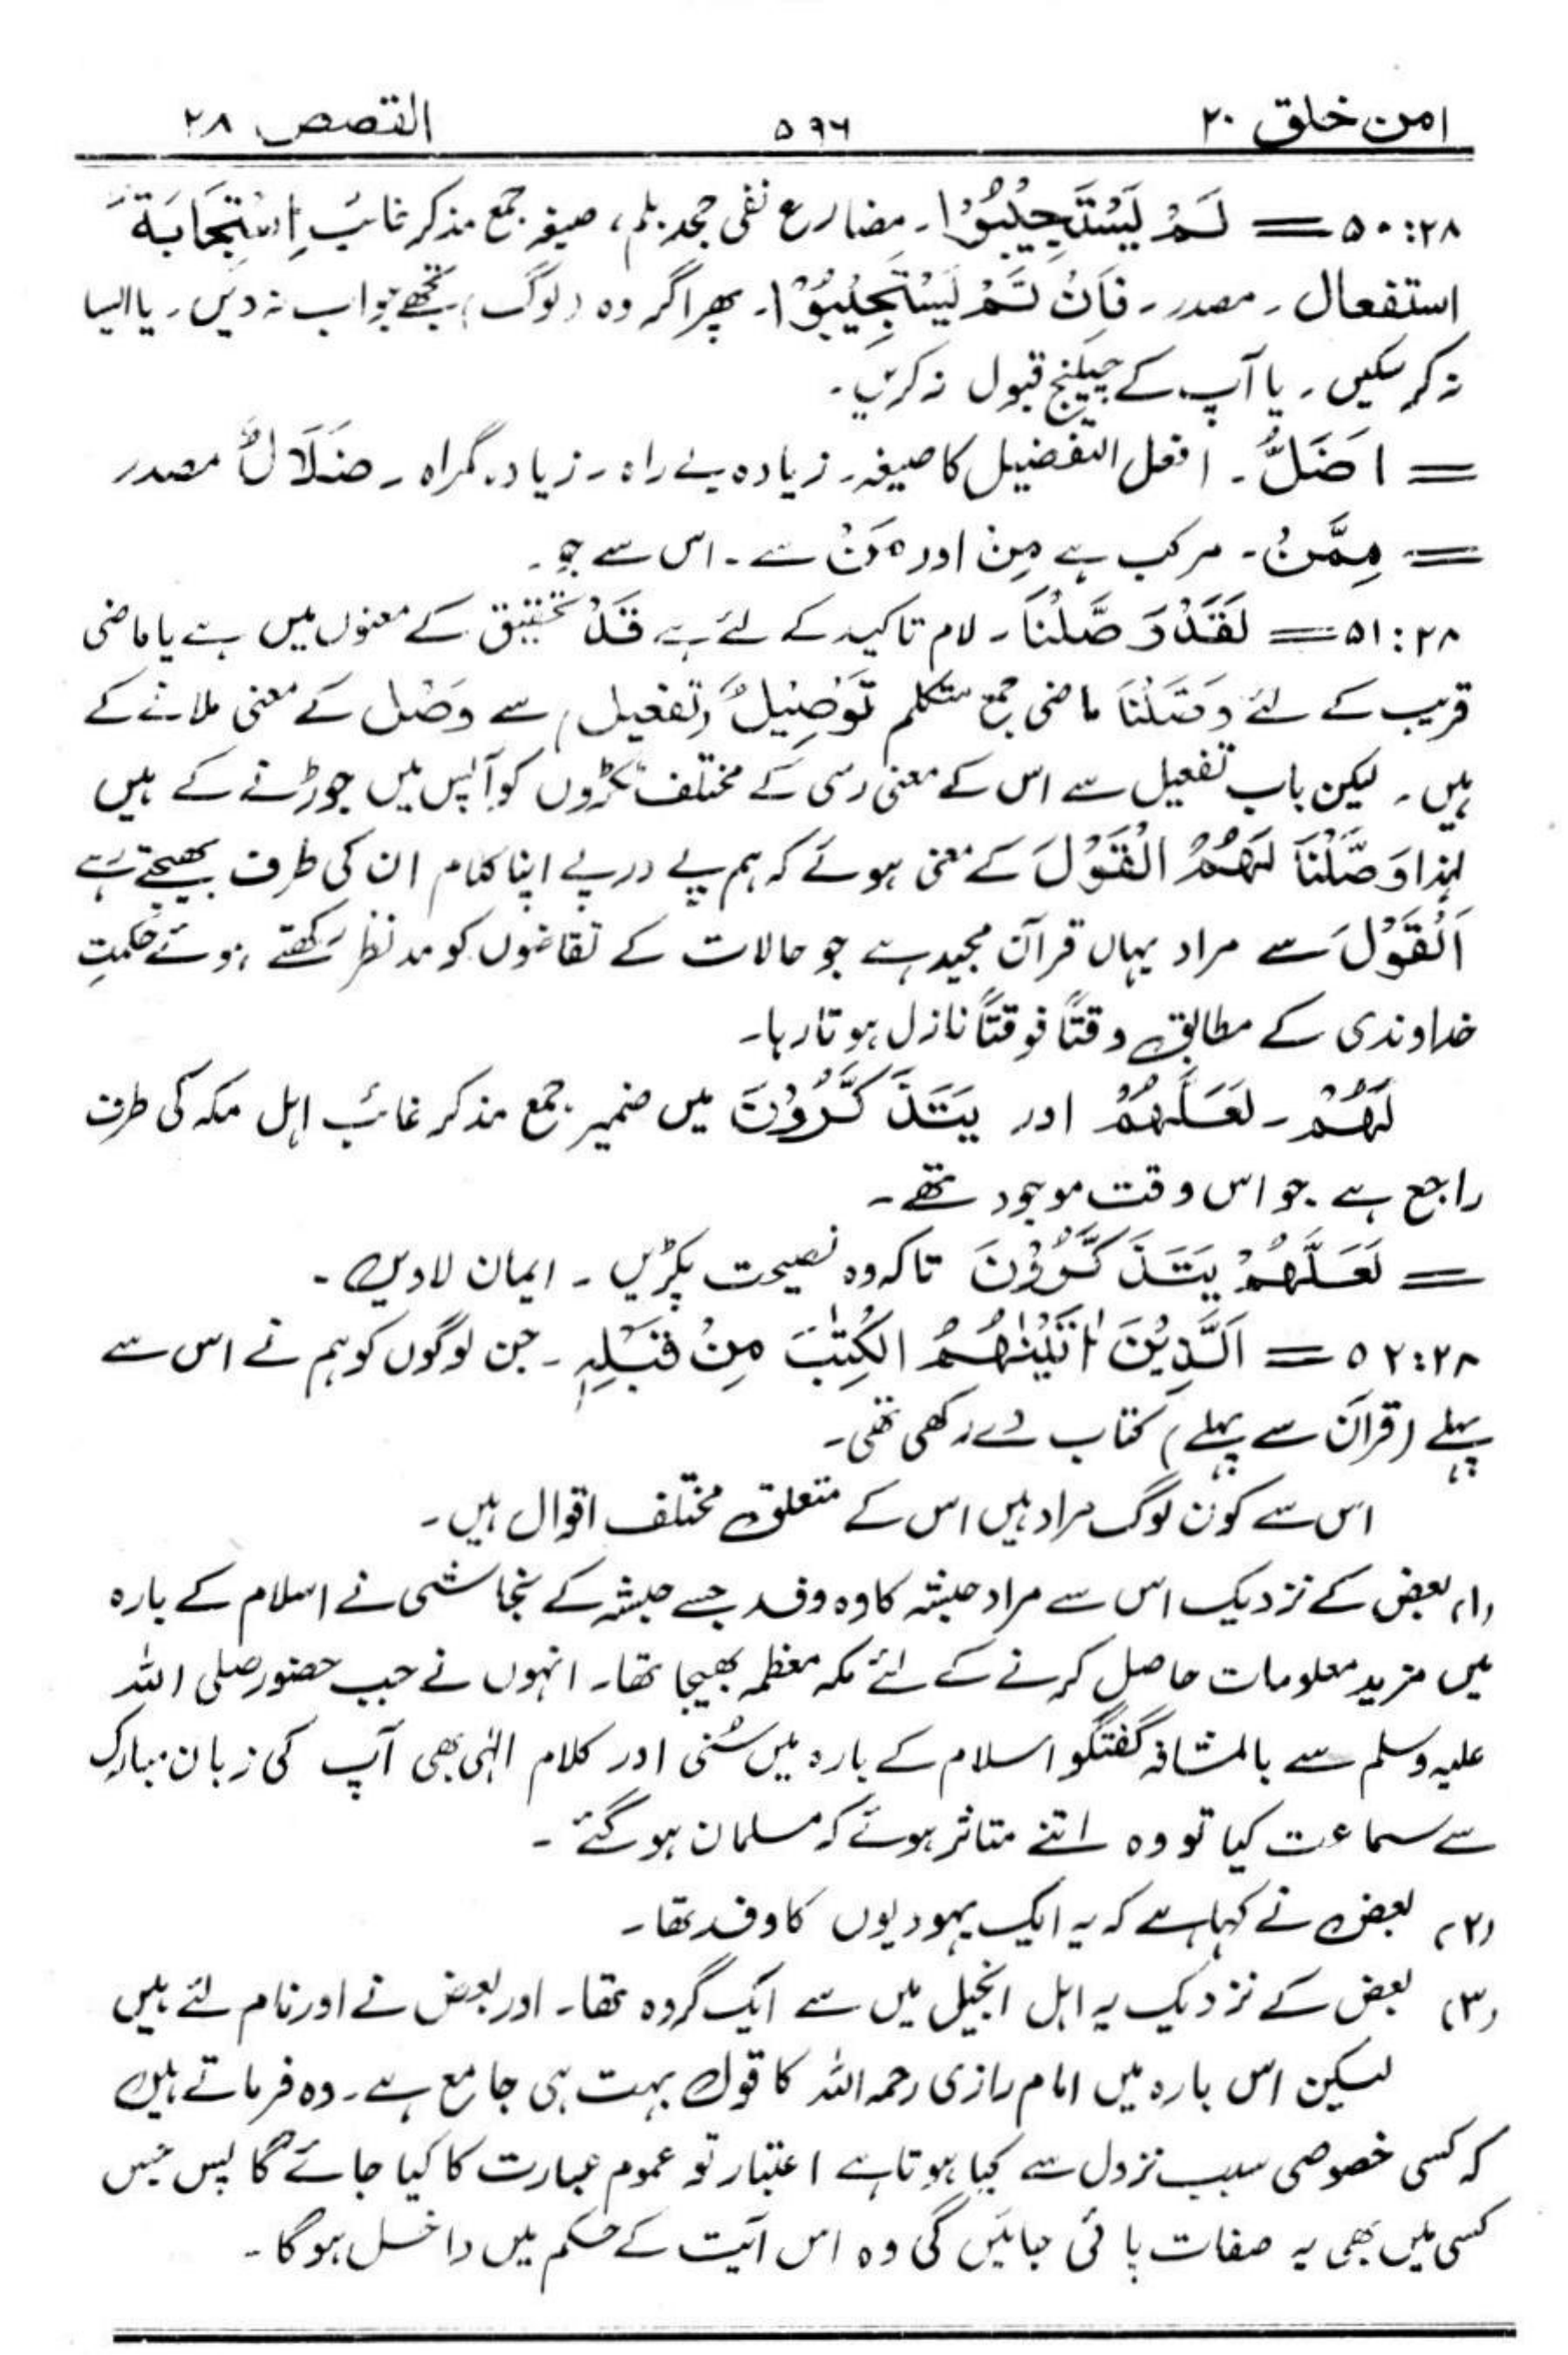 امن خلق ۲۰ ۵۹۶ القصص ۲۸
۵۰:۲۸ = لَمْ یَسْتَجِیْبُوْا۔ مضارع نفی جحد بلم، صیغہ جمع مذکر غائب اِسْتِجَابَۃٌ
استفعال۔ مصدر۔ فَاِنْ لَّمْ یَسْتَجِیْبُوْا۔ پھر اگر وہ (لوگ) تجھے جواب نہ دیں۔ یا ایسا
نہ کر سکیں۔ یا آپ کے چیلنج قبول نہ کریں۔
= اَضَلُّ۔ افعل التفضیل کا صیغہ۔ زیادہ بے راہ۔ زیادہ گمراہ۔ ضَلَالٌ مصدر
= مِمَّنْ۔ مرکب ہے مِنْ اور مَنْ سے۔ اس سے جو۔
۵۱:۲۸ = لَقَدْ وَصَّلْنَا۔ لام تاکید کے لئے ہے قَدْ تحقیق کے معنوں میں ہے یا ماضی
قریب کے لئے وَصَّلْنَا ماضی جمع متکلم تَوْصِیْلٌ (تفعیل) سے وَصْل کے معنی ملانے کے
ہیں۔ لیکن باب تفعیل سے اس کے معنی رسی کے مختلف ٹکڑوں کو آپس میں جوڑنے کے ہیں
لہٰذا وَصَّلْنَا لَھُمُ الْقَوْلَ کے معنی ہوئے کہ ہم پے درپے اپنا کلام ان کی طرف بھیجتے رہے
اَلْقَوْلَ سے مراد یہاں قرآن مجید ہے جو حالات کے تقاضوں کو مدنظر رکھتے ہوئے حکمتِ
خداوندی کے مطابق وقتاً فوقتاً نازل ہوتا رہا۔
لَھُمْ۔ لَعَلَّھُمْ اور یَتَذَکَّرُوْنَ میں ضمیر جمع مذکر غائب اہل مکہ کی طرف
راجع ہے جو اس وقت موجود تھے۔
= لَعَلَّھُمْ یَتَذَکَّرُوْنَ تاکہ وہ نصیحت پکڑیں۔ ایمان لاویں۔
۵۲:۲۸ = اَلَّذِیْنَ اٰتَیْنٰھُمُ الْکِتٰبَ مِنْ قَبْلِہٖ۔ جن لوگوں کو ہم نے اس سے
پہلے (قرآن سے پہلے) کتاب دے رکھی تھی۔
اس سے کون لوگ مراد ہیں اس کے متعلق مختلف اقوال ہیں۔
(۱) بعض کے نزدیک اس سے مراد حبشہ کا وہ وفد جسے حبشہ کے نجاشی نے اسلام کے بارہ
میں مزید معلومات حاصل کرنے کے لئے مکہ معظمہ بھیجا تھا۔ انہوں نے جب حضور صلی اللہ
علیہ وسلم سے بالمشافہ گفتگو اسلام کے بارہ میں سُنی اور کلام الٰہی بھی آپ کی زبان مبارک
سے سماعت کیا تو وہ اتنے متاثر ہوئے کہ مسلمان ہو گئے۔
(۲) بعض نے کہا ہے کہ یہ ایک یہودیوں کا وفد تھا۔
(۳) بعض کے نزدیک یہ اہل انجیل میں سے ایک گروہ تھا۔ اور بعض نے اور نام لئے ہیں
لیکن اس بارہ میں امام رازی رحمہ اللہ کا قول بہت ہی جامع ہے۔ وہ فرماتے ہیں
کہ کسی خصوصی سبب نزول سے کیا ہوتا ہے اعتبار تو عموم عبارت کا کیا جائے گا پس جس
کسی میں بھی یہ صفات پائی جائیں گی وہ اس آیت کے حکم میں داخل ہوگا۔